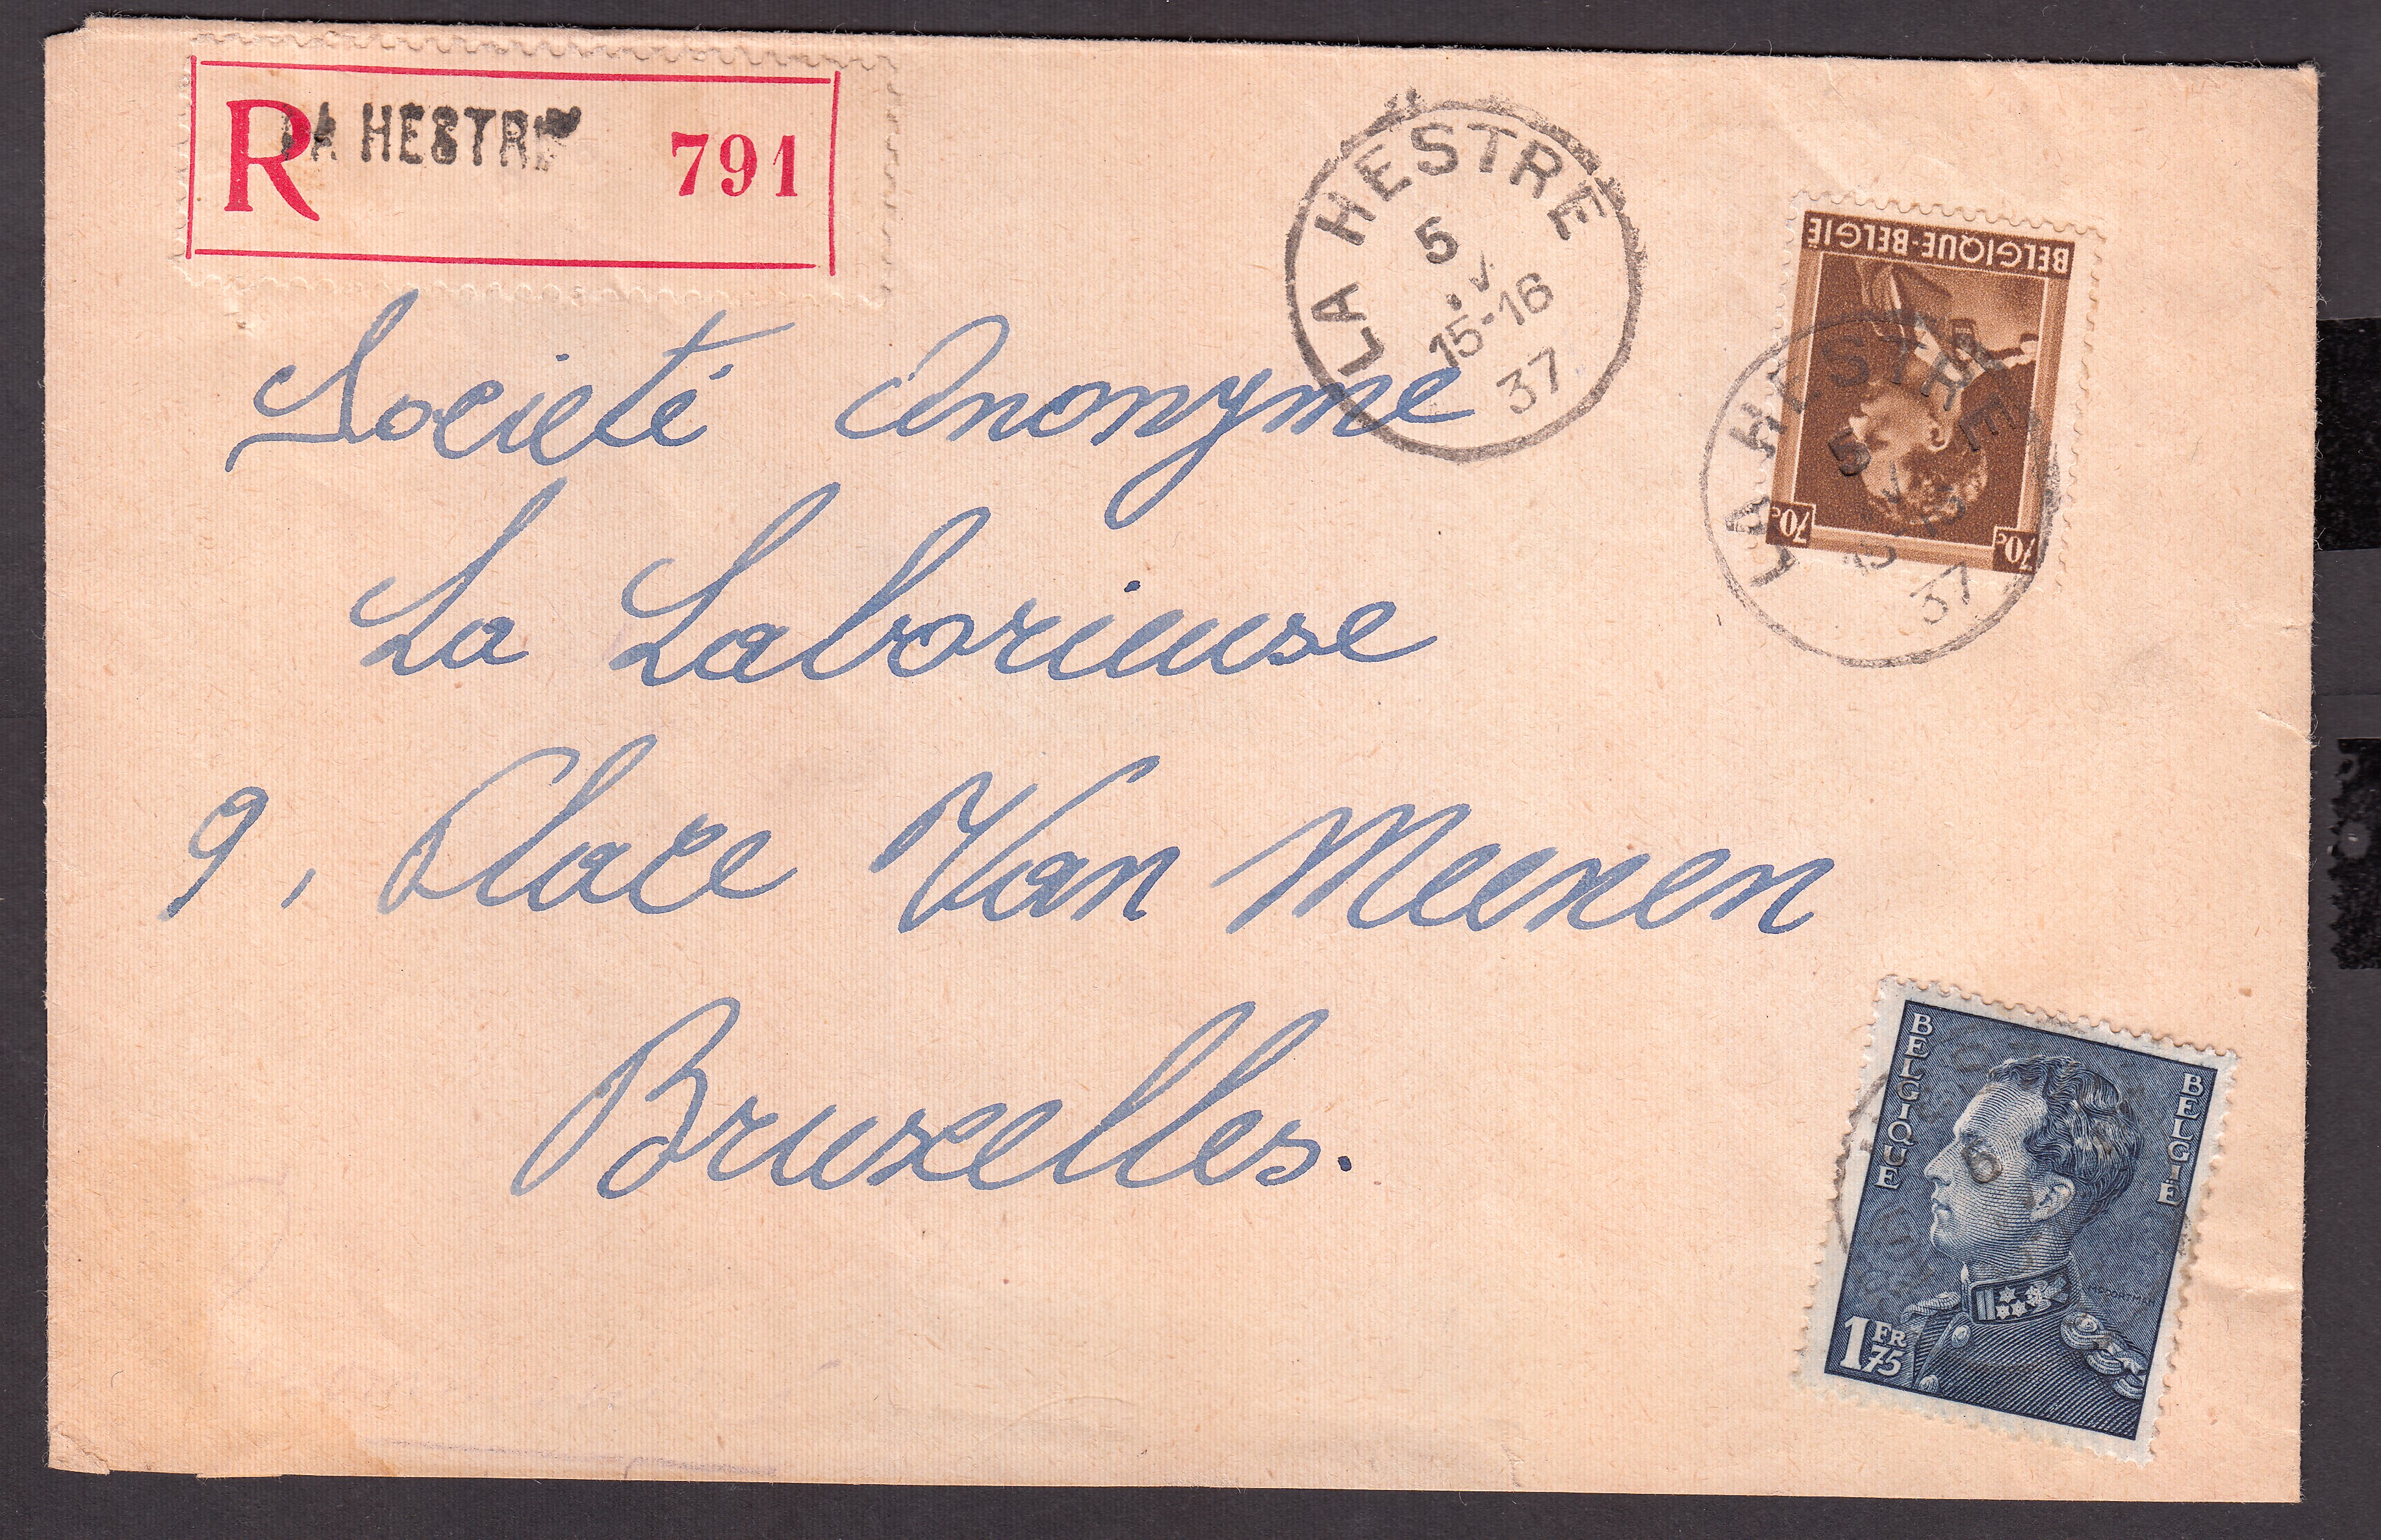 R LA HESTRE 791
LA HESTRE
5
V
15-16
37
BELGIQUE-BELGIË
70c
70c
LA HESTRE
5
V
37
Societé Anonyme
La Laborieuse
9, Place Van Meenen
Bruxelles.
BELGIQUE
BELGIË
1 FR 75